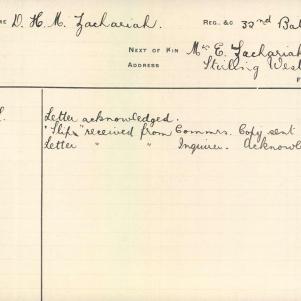 D. H. M. Zachariah. REG. &C 32nd Bat
NEXT OF KIN Mrs E. Zachariah
ADDRESS Stirling West
Letter acknowledged.
"Slips" received from Commrs. Copy sent
Letter " " Inquirer. Acknowl